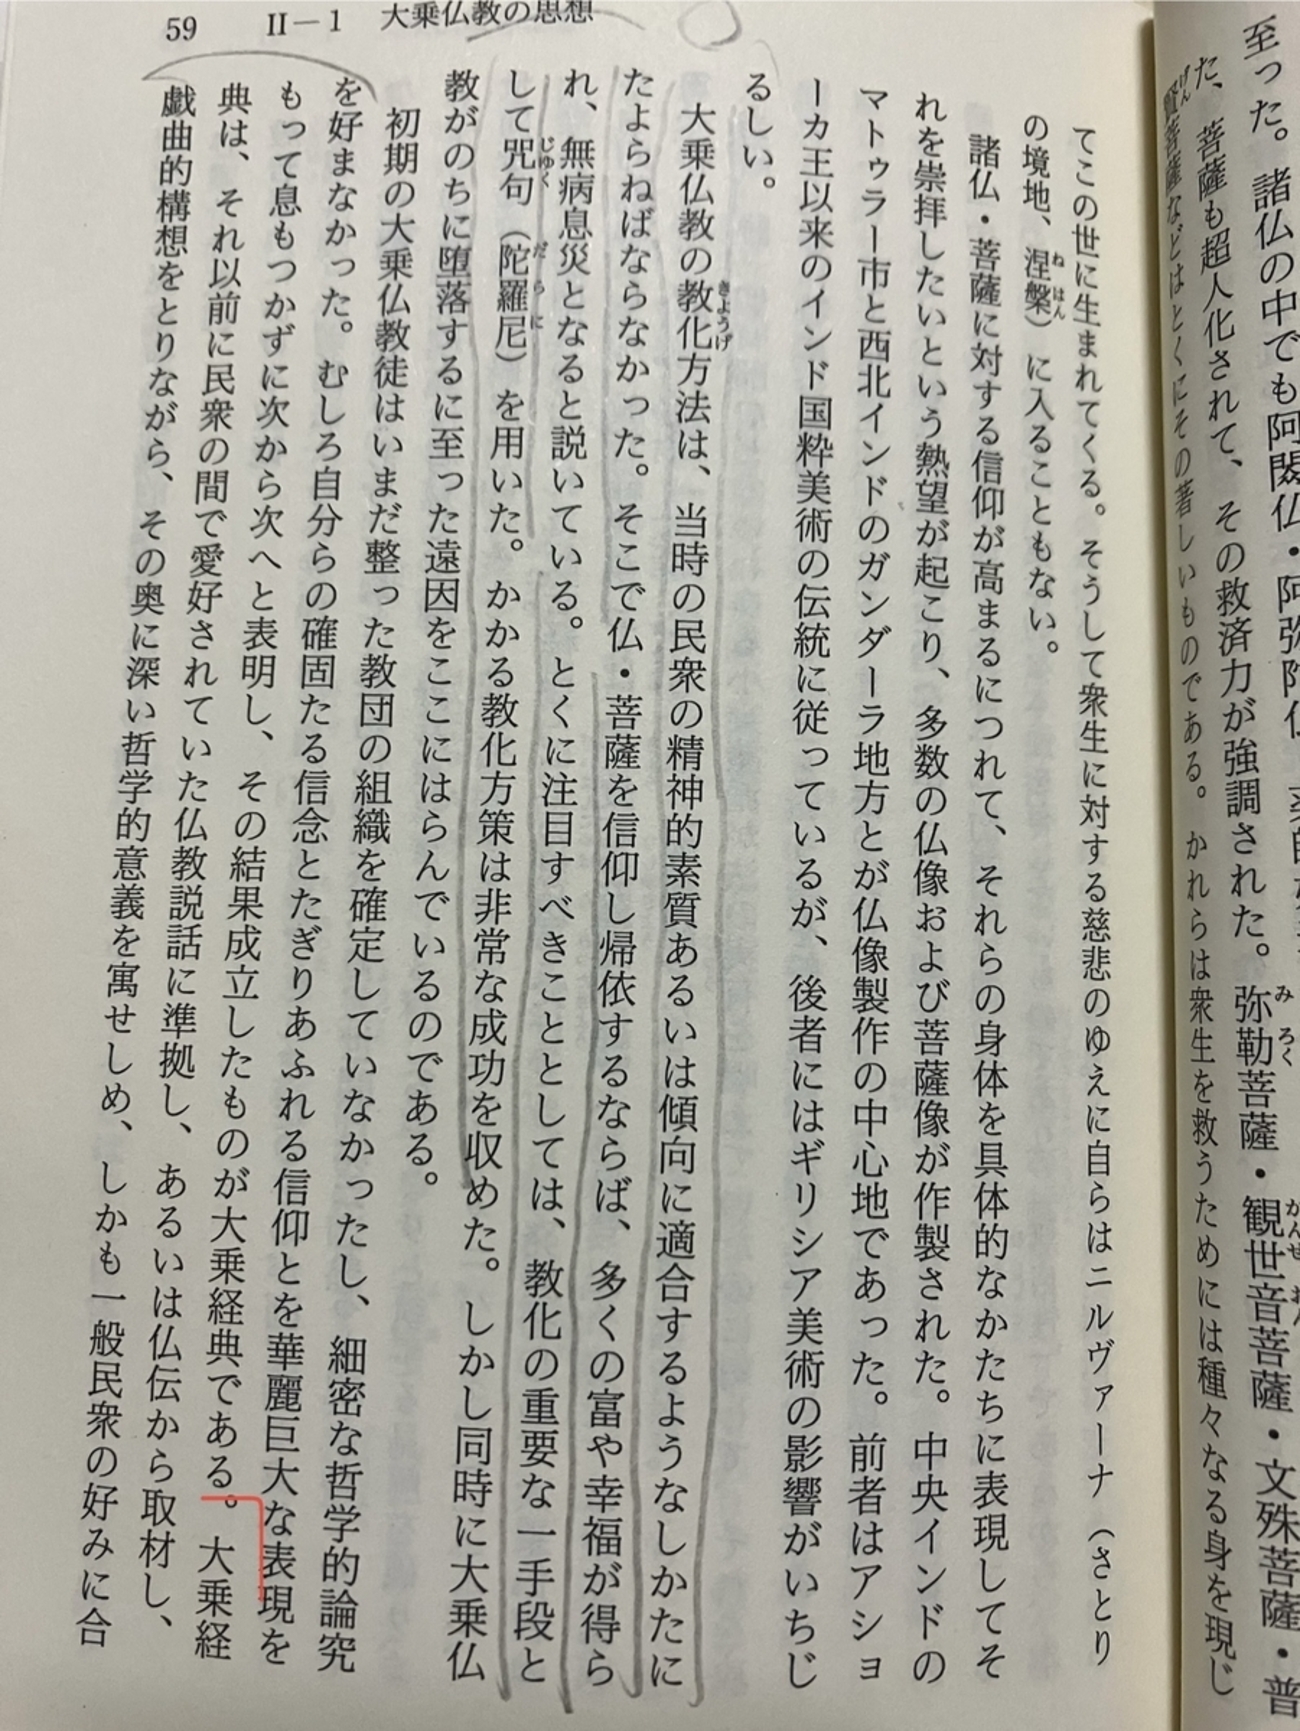 至った。諸仏の中でも阿閦仏・阿弥陀仏
た、菩薩も超人化されて、その救済力が強調された。弥勒菩薩・観世音菩薩・文殊菩薩・普
賢菩薩などはとくにその著しいものである。かれらは衆生を救うためには種々なる身を現じ
てこの世に生まれてくる。そうして衆生に対する慈悲のゆえに自らはニルヴァーナ（さとり
の境地、涅槃）に入ることもない。
諸仏・菩薩に対する信仰が高まるにつれて、それらの身体を具体的なかたちに表現してそ
れを崇拝したいという熱望が起こり、多数の仏像および菩薩像が作製された。中央インドの
マトゥラー市と西北インドのガンダーラ地方とが仏像製作の中心地であった。前者はアショ
ーカ王以来のインド国粋美術の伝統に従っているが、後者にはギリシア美術の影響がいちじ
るしい。
大乗仏教の教化方法は、当時の民衆の精神的素質あるいは傾向に適合するようなしかたに
たよらねばならなかった。そこで仏・菩薩を信仰し帰依するならば、多くの富や幸福が得ら
れ、無病息災となると説いている。とくに注目すべきこととしては、教化の重要な一手段と
して咒句（陀羅尼）を用いた。かかる教化方策は非常な成功を収めた。しかし同時に大乗仏
教がのちに堕落するに至った遠因をここにはらんでいるのである。
初期の大乗仏教徒はいまだ整った教団の組織を確定していなかったし、細密な哲学的論究
を好まなかった。むしろ自分らの確固たる信念とたぎりあふれる信仰とを華麗巨大な表現を
もって息もつかずに次から次へと表明し、その結果成立したものが大乗経典である。大乗経
典は、それ以前に民衆の間で愛好されていた仏教説話に準拠し、あるいは仏伝から取材し、
戯曲的構想をとりながら、その奥に深い哲学的意義を寓せしめ、しかも一般民衆の好みに合
59 II－1 大乗仏教の思想